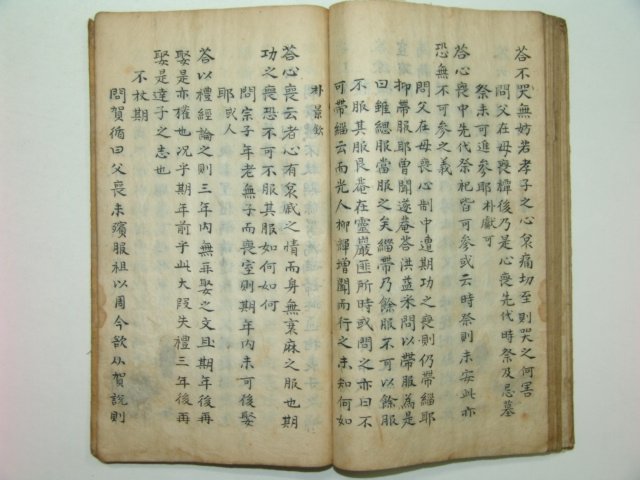 答不哭無妨若孝子之心哀痛切至則哭之何害
問父在母喪禫後乃是心喪先代時祭及忌墓
祭未可進參耶朴獻可
答心喪中先代祭祀皆可參或云時祭則未安此亦
恐無不可參之義
問父在母喪心制中遭期功之喪則仍帶緇耶
抑帶服耶曾聞遂菴答洪益采問以帶服爲是
曰雖緦服當服之矣緇帶乃餘服不可以餘服
不服其服艮菴在靈巖匪所時或問之亦曰不
可帶緇云而光人柳輝增聞而行之未知何如
林景欽
答心喪云者心有哀戚之情而身無衰麻之服也期
功之喪恐不可不服其服如何如何
問宗子年老無子而喪室則期年內未可後娶
耶或人
答以禮經論之則三年內無再娶之文且期年後再
娶是亦權也况乎期年前乎此大段失禮三年後再
娶是達子之志也
不杖期
問賀循曰父喪未殯服祖以周今欲从賀說則